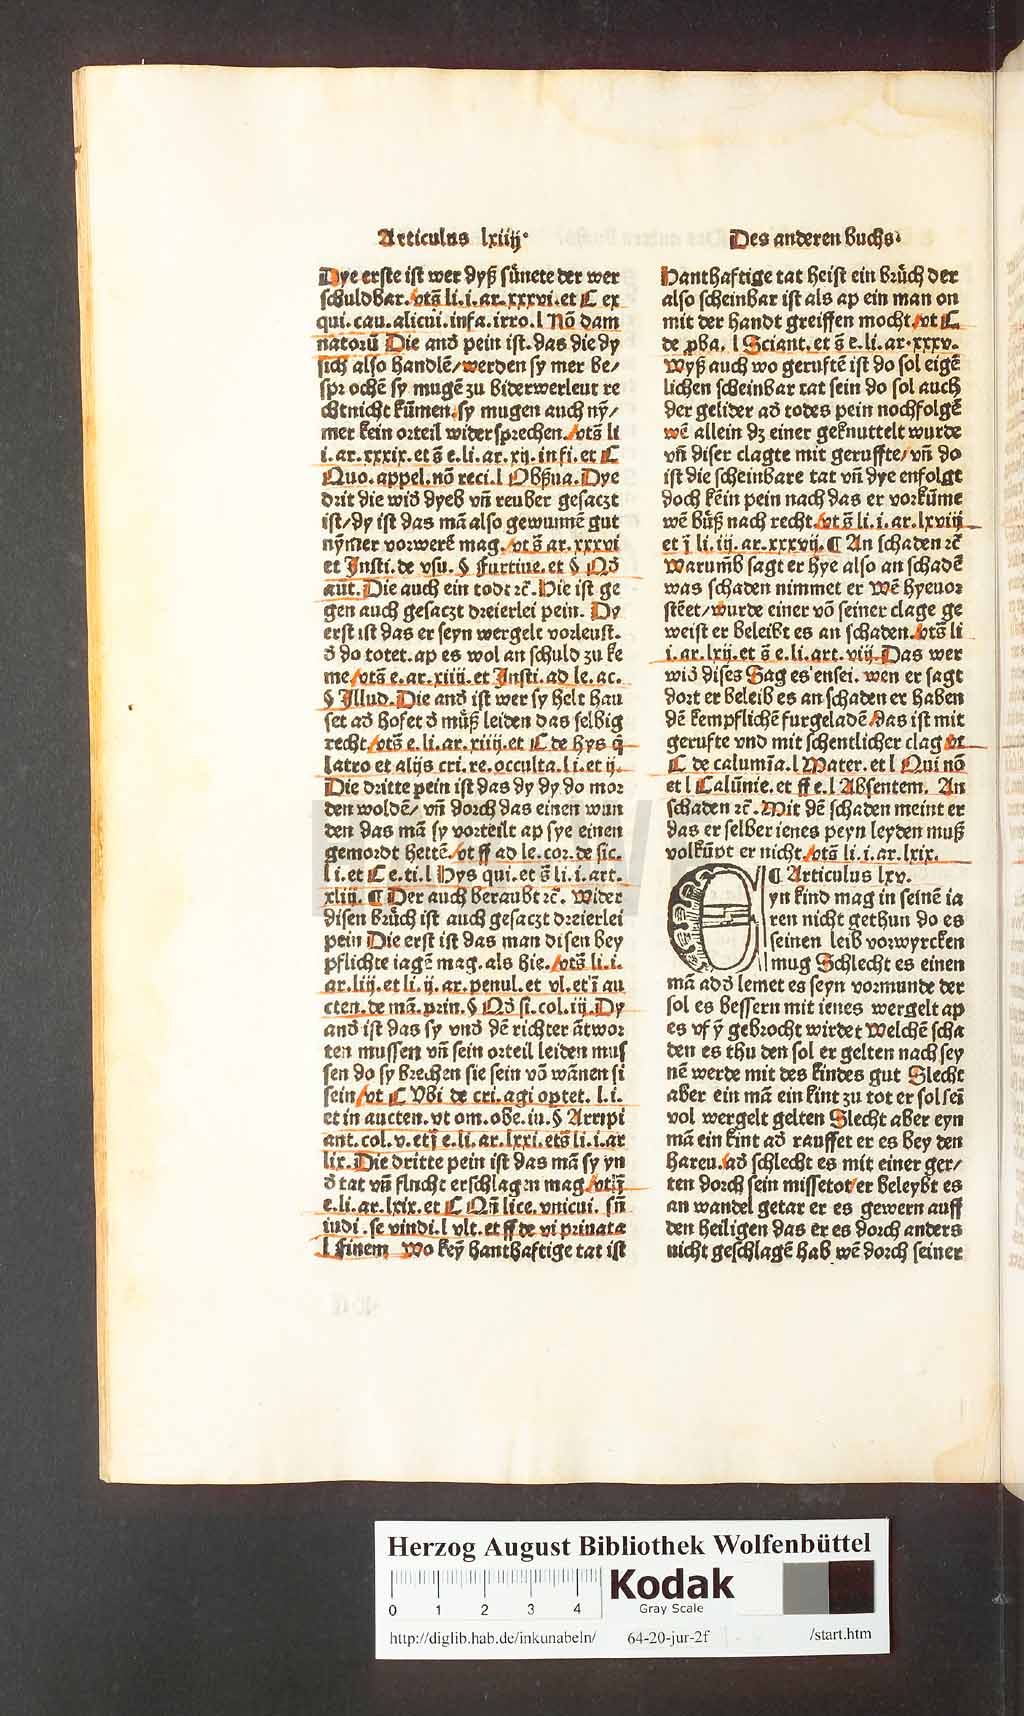 Articulus lxiiij.
Des anderen buchs.
Dye erste ist wer dyß sünete der wer
schuldbar. vts̄ li.i.ar.xxxvi.et C ex
qui.cau.alicui.infa.irro.l Nō dam
natorū Die and̄ pein ist. das die dy
sich also handlē/werden sy mer be/
sprochē sy mugē zu biderwerleut re
chtnicht kūmen. sy mugen auch nȳ/
mer kein orteil widersprechen. vts̄ li
i.ar.xxxix.et s̄ e.li.ar.xij.infi.et C
Quo.appel.nō reci.l Obsūa. Dye
drit die wid̄ dyeb vn̄ reuber gesaczt
ist/dy ist das mā also gewunnē gut
nȳmer vorwerē mag. vt s̄ ar.xxxvi
et Insti.de vsu.§ Furtiue.et § Qd̄
aut̄. Die auch ein todt ꝛc̄. Hie ist ge
gen auch gesaczt dreierlei pein. Dy
erst ist das er seyn wergelt vorleust.
d̄ do totet. ap es wol an schuld zu ke
me/vts̄ e.ar.xiiij.et Insti.ad le.ac.
§ Illud. Die and̄ ist wer sy helt hau
set ad̄ hofet d̄ müß leiden das selbig
recht. vts̄ e.li.ar.xiij.et C de hys q̄
latro et alijs cri.re.occulta.l.i.et ij.
Die dritte pein ist das dy dy do mor
den woldē/ vn̄ dorch das einen wun
den das mā sy vorteilt ap sye einen
gemordt hettē. vt ff ad le.cor.de sic.
l i.et C e.ti.l Hys qui.et s̄ li.i.art.
xliij. ¶ Der auch beraubt ꝛc̄. Wider
disen brůch ist auch gesaczt dreierlei
pein Die erst ist das man disen bey
pflichte iagē mag. als hie. vts̄ li.i.
ar.liij.et li.ij.ar.penul.et vl.et ī au
cten.de mā.prin.§ Qd̄ si.col.iij. Dy
and̄ ist das sy vnd̄ dē richter ātwor
ten mussen vn̄ sein orteil leiden mus
sen do sy brechen sie sein vō wānen si
sein/vt C Vbi de cri.agi optet.l.i.
et in aucten.vt om.obe.iu.§ Arripi
ant.col.v.et ī e.li.ar.lxxi.ets̄ li.i.ar
lix. Die dritte pein ist das mā sy yn
d̄ tat vn̄ flucht erschlagen mag/vt ī
e.li.ar.lxix.et C Qn̄ lice.vnicui.sn̄
iudi.se vindi.l vlt.et ff de vi priuata
l Finem Wo keȳ hanthaftige tat ist
Hanthaftige tat heist ein brůch der
also scheinbar ist als ap ein man on
mit der handt greiffen mocht. vt C
de ꝓba.l Sciant.et s̄ e.li.ar.xxxv.
Wyß auch wo geruftē ist do sol eigē
lichen scheinbar tat sein do sol auch
der gelider ad̄ todes pein nochfolgē
wē allein dz einer geknuttelt wurde
vn̄ diser clagte mit geruffte/ vn̄ do
ist die scheinbare tat vn̄ dye enfolgt
doch kēin pein nach das er vorkūme
wē bůß nach recht. vt s̄ li.i.ar.lxviij
et ī li.iij.ar.xxxvij. ¶ An schaden ꝛc̄
Warumb̄ sagt er hye also an schadē
was schaden nimmet er Wē hyeuor
stēet/wurde einer vō seiner clage ge
weist er beleibt es an schaden. vts̄ li
i.ar.lxij.et s̄ e.li.art.viij. Das wer
wid̄ dises Sag es ensei. wen er sagt
dort er beleib es an schaden er haben
dē kempflichē furgeladē das ist mit
gerufte vnd mit schentlicher clag vt
C de calumīa.l Mater.et l Qui nō
et l Calūnie.et ff e.l Absentem. An
schaden ꝛc̄. Mit dē schaden meint er
das er selber ienes peyn leyden muß
volkūpt er nicht. vts̄ li.i.ar.lxix.
¶ Articulus lxv.
Eyn kind mag in seinē ia
ren nicht gethun do es
seinen leib vorwyrcken
mug Schlecht es einen
mā ad̄ d̄ lemet es seyn vormunde der
sol es bessern mit ienes wergelt ap
es vf ȳ gebrocht wirdet Welchē scha
den es thu den sol er gelten nach sey
nē werde mit des kindes gut Slecht
aber ein mā ein kint zu tot er sol sei
vol wergelt gelten Slecht aber eyn
mā ein kint ad̄ rauffet er es bey den
haren. ad̄ schlecht es mit einer ger/
ten dorch sein missetot/er beleybt es
an wandel getar er es gewern auff
den heiligen das er es dorch anders
nicht geschlagē hab wē dorch seiner
Herzog August Bibliothek Wolfenbüttel
0 1 2 3 4
Kodak
Gray Scale
http://diglib.hab.de/inkunabeln/ 64-20-jur-2f /start.htm